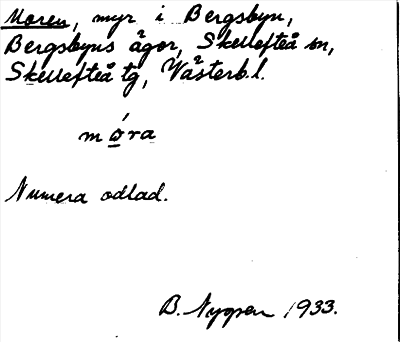 Moren, myr i Bergsbyn,
Bergsbyns ägor, Skellefteå sn,
Skellefteå tg, Västerb.l.
mo̲´ra
Numera odlad.
B. Nygren 1933.